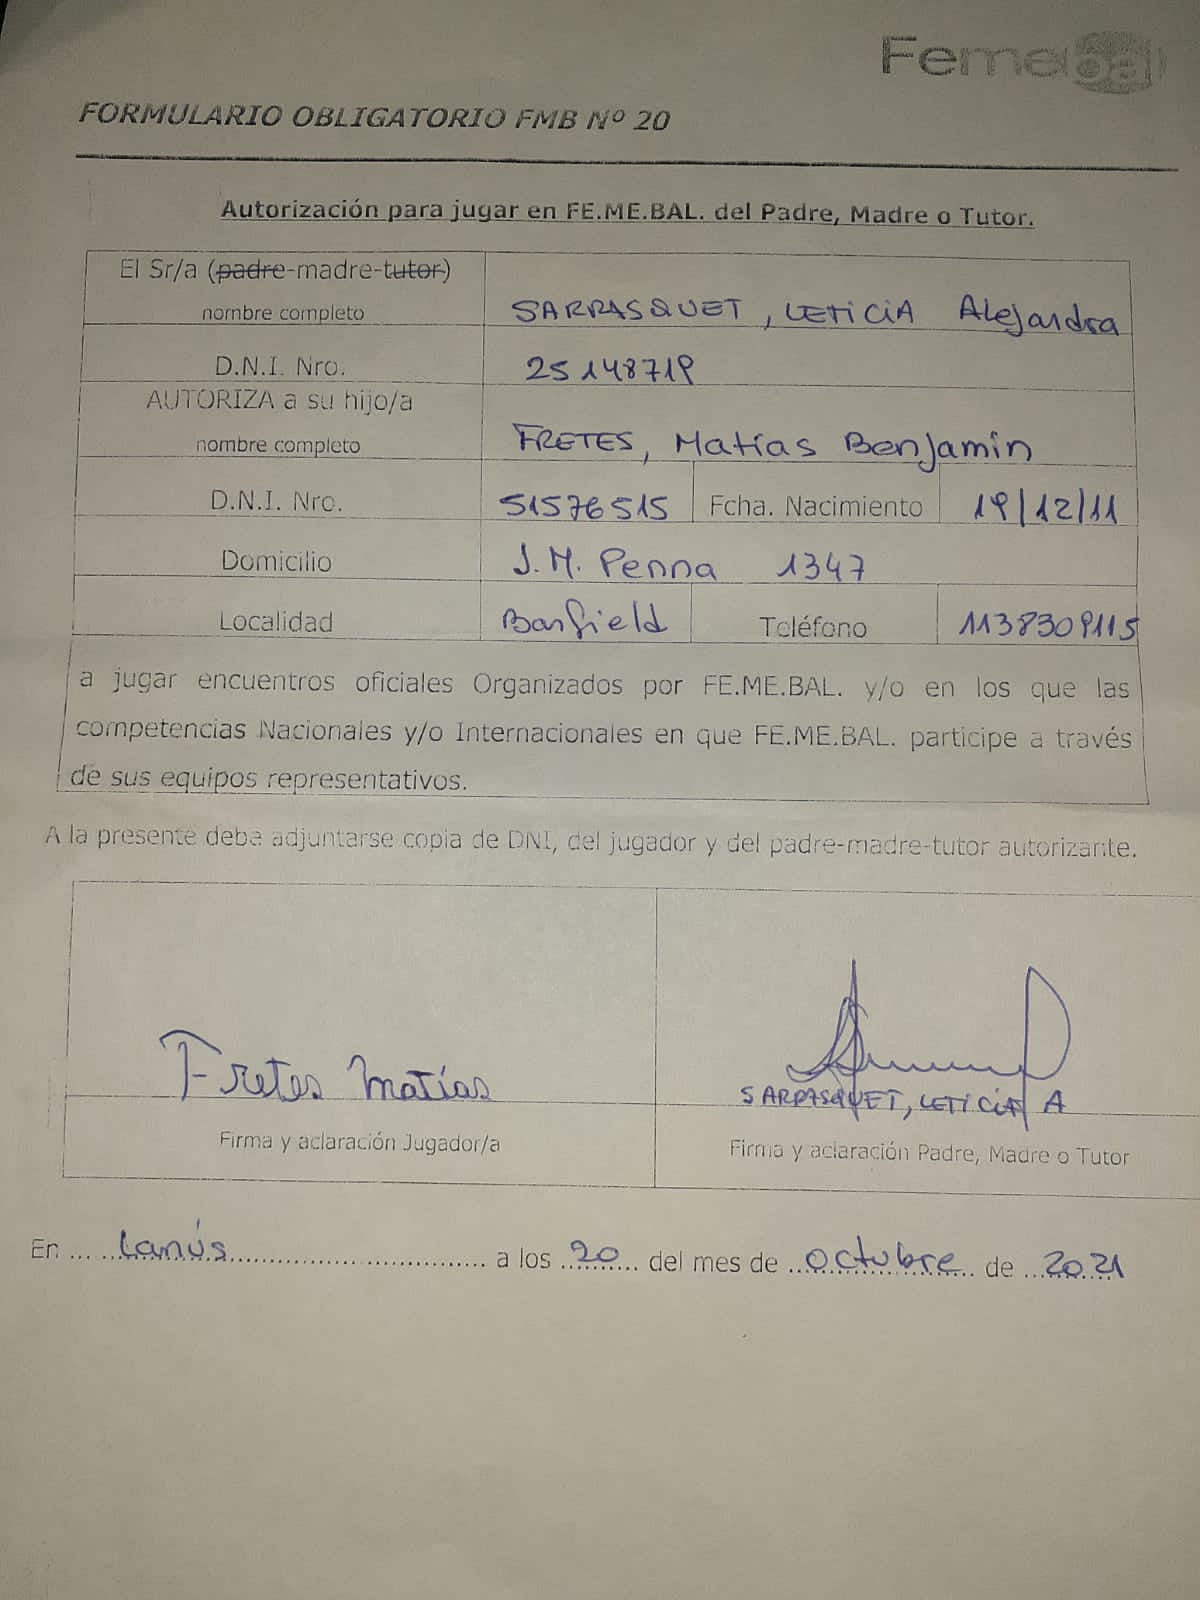 Femebal
FORMULARIO OBLIGATORIO FMB Nº 20
Autorización para jugar en FE.ME.BAL. del Padre, Madre o Tutor.
El Sr/a (padre-madre-tutor)
nombre completo
SARRASQUET, LETICIA Alejandra
D.N.I. Nro. 25148719
AUTORIZA a su hijo/a
nombre completo
FRETES, Matías Benjamín
D.N.I. Nro. 51576515 Fcha. Nacimiento 19/12/11
Domicilio J.M. Penna 1347
Localidad Banfield Teléfono 1138309115
a jugar encuentros oficiales Organizados por FE.ME.BAL. y/o en los que las
competencias Nacionales y/o Internacionales en que FE.ME.BAL. participe a través
de sus equipos representativos.
A la presente debe adjuntarse copia de DNI, del jugador y del padre-madre-tutor autorizante.
Fretes Matías
SARRASQUET, LETICIA A
Firma y aclaración Jugador/a
Firma y aclaración Padre, Madre o Tutor
En ... Lanús ... a los 20 del mes de octubre de 2021